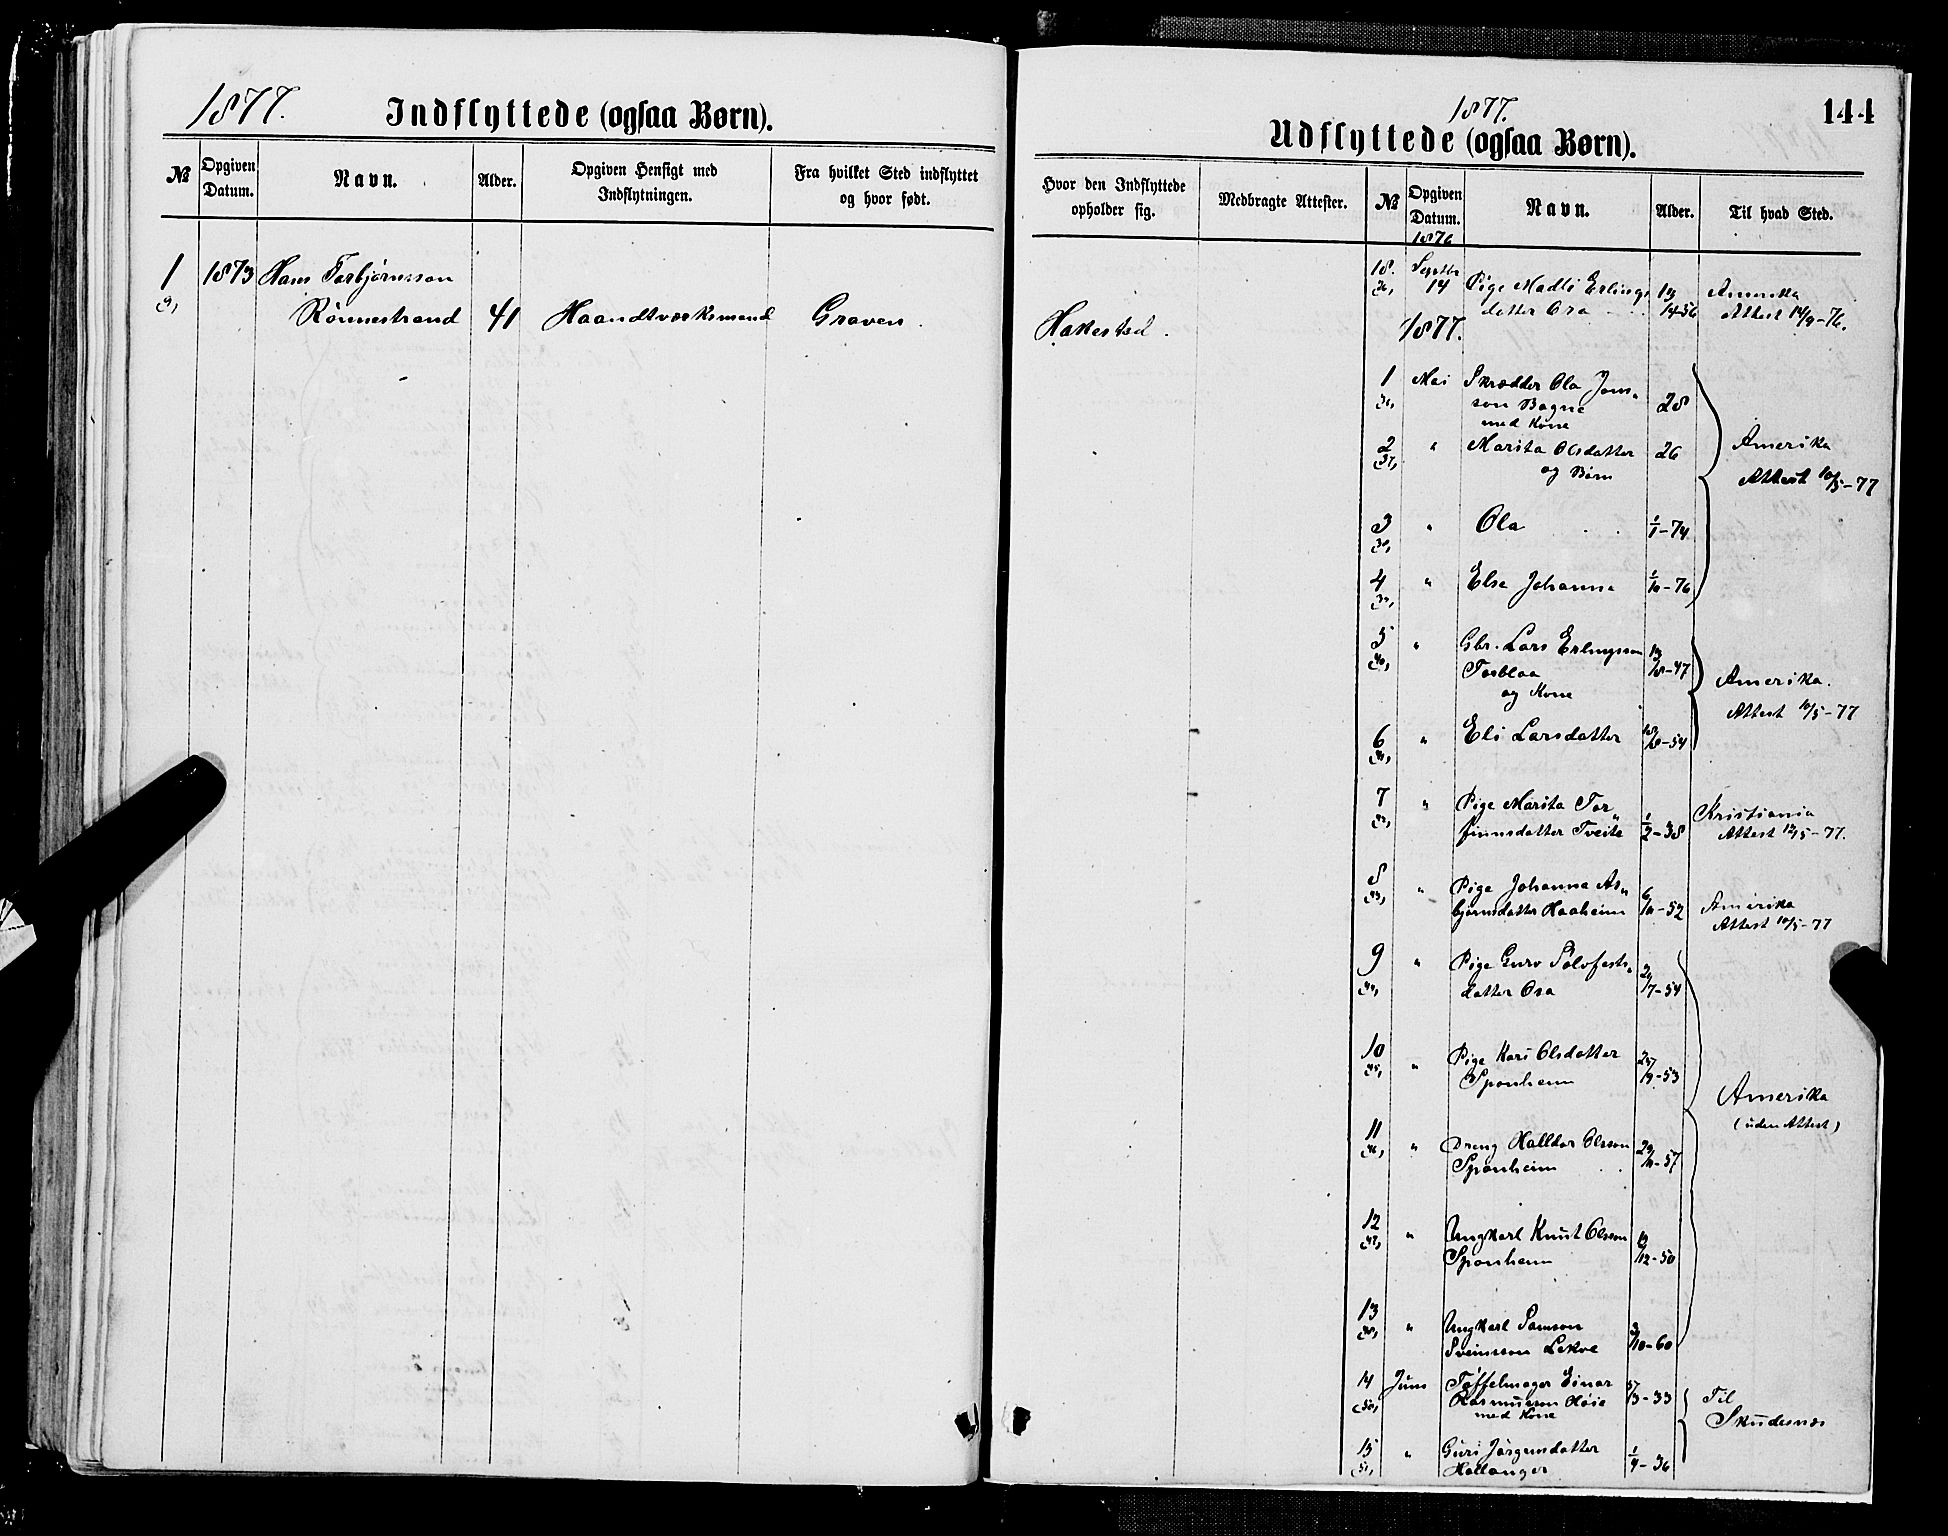 1877.
Indflyttede (ogsaa Børn).
№
Opgiven
Datum.
Navn.
Alder.
Opgiven Hensigt med
Indflytningen.
Fra hvilket Sted indflyttet
og hvor født.
1
1873
Hans Torbjørnsson
Rönnestrand
41
Haandtværksmand
Graven.
1877.
144
Udflyttede (ogsaa Børn).
Hvor den Indflyttede
opholder sig.
Medbragte Attester.
№
Opgiven
Datum.
Navn.
Alder.
Til hvad Sted.
1876
Hakestad.
18. Septbr 14 Pige Madli Erlings
datter Ora 13/14-56 Amerika
Attest 14/9-76.
1877.
1 Mai Skrædder Ola Jons-
son Bagne 28
med Kone
2 " Marita Olsdatter 26 Amerika
og Børn Attest 10/5-77
3 " Ola 1/1-74
4 " Elsa Johanna 1/10-76
5 " Gbr. Lars Erlingsson
Torblaa 13/8-47 Amerika.
og Kone Attest 10/5-77
6 " Eli Larsdatter 18/8-54
7 " Pige Marita Tor-
finnsdatter Tveite 1/2-38 Kristiania
Attest 12/5-77.
8 " Pige Johanna As-
bjørnsdatter Haaheim 6/10-52 Amerika
Attest 10/5-77
9 " Pige Guro Sølvfests-
datter Osa 24/7-54
10 " Pige Kari Olsdatter
Sponheim 27/9-53 Amerika
(uden Attest)
11 " Dreng Halldor Olsson
Sponheim 29/10-57
12 " Ungkarl Knut Olsson
Sponheim 12/12-50
13 " Ungkarl Samson
Sveinsson Lekve 3/10-60
14 Juni Tøffelmager Einar
Rasmusson Høie 5/3-33 Til
med Kone Skudesnæs
15 " Guri Jørgensdatter
Hollanger 1/4-36